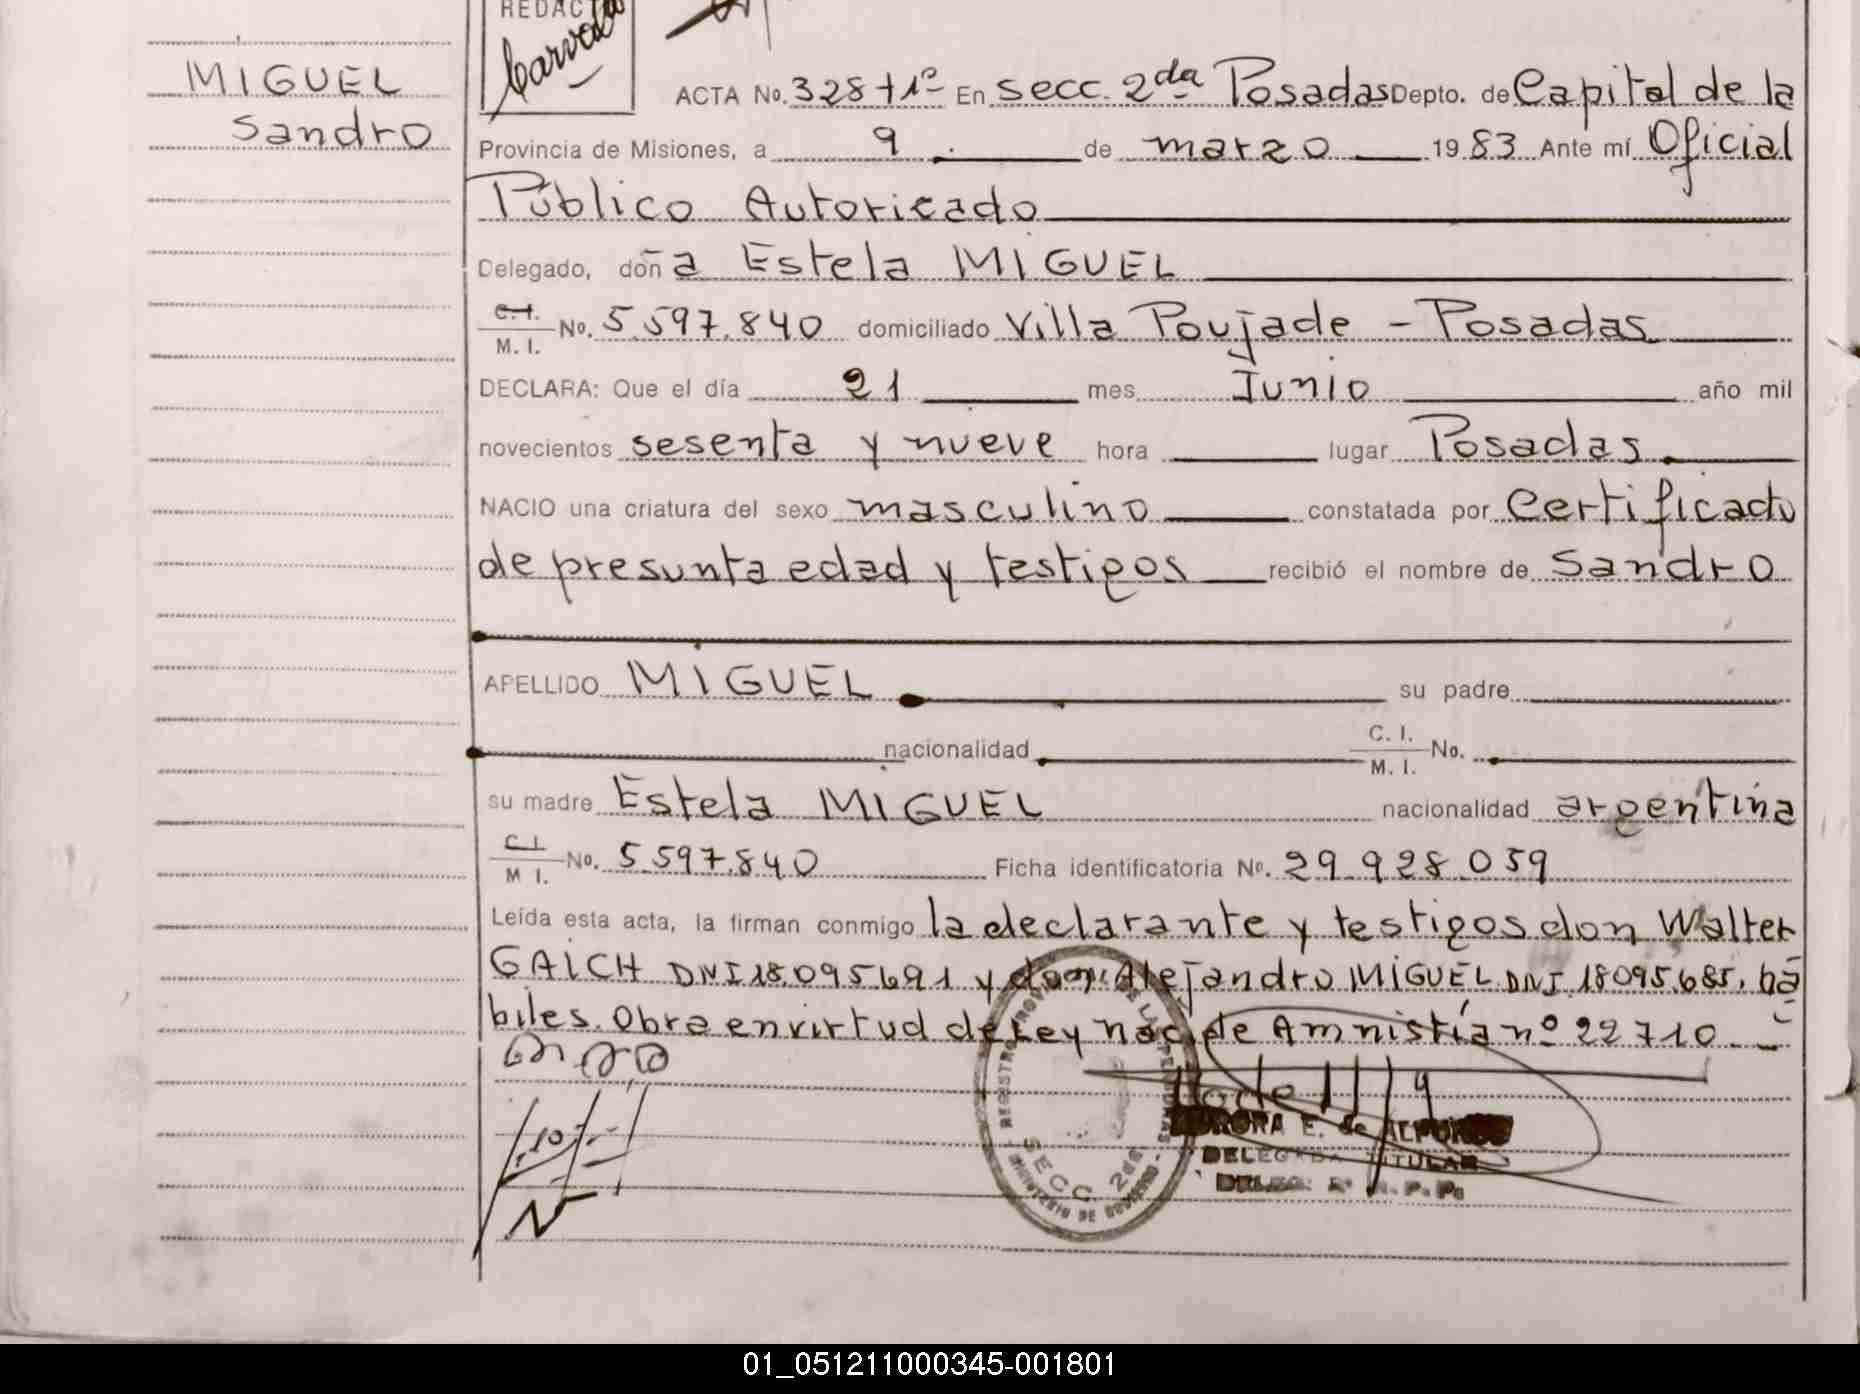 REDACT
Carvalo
MIGUEL
Sandro
ACTA No. 328 t 1º En secc. 2da Posadas Depto. de Capital de la
Provincia de Misiones, a 9 de marzo 1983 Ante mí Oficial
Público Autoricado
Delegado, doña Estela MIGUEL
C.I.
M. I. No. 5.597.840 domiciliado Villa Poujade - Posadas
DECLARA: Que el día 21 mes Junio año mil
novecientos sesenta y nueve hora lugar Posadas
NACIO una criatura del sexo masculino constatada por Certificado
de presunta edad y testigos recibió el nombre de Sandro
APELLIDO MIGUEL su padre
nacionalidad C. I.
M. I. No.
su madre Estela MIGUEL nacionalidad argentina
C.I.
M I. No. 5.597.840 Ficha identificatoria No. 29.928.059
Leída esta acta, la firman conmigo la declarante y testigos don Walter
GAICH DNI 18.095.691 y don Alejandro MIGUEL DNI. 18095.685, há
biles. Obra en virtud de Ley Nac. de Amnistía nº 22710
REGISTRO PROVINCIAL DE LAS PERSONAS
SECC. 2da
MINISTERIO DE GOBIERNO
AURORA E. de
DELEGADA TITULAR
DELEG. 2ª R. P. P.
01_051211000345-001801